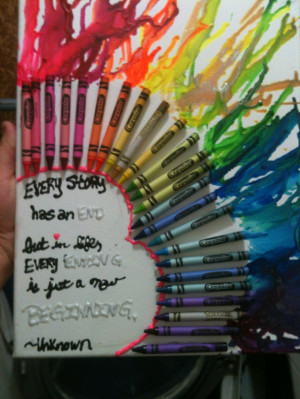 EVERY STORY
has an END
But in life,
EVERY ENDING
is just a new
BEGINNING.
~Unknown